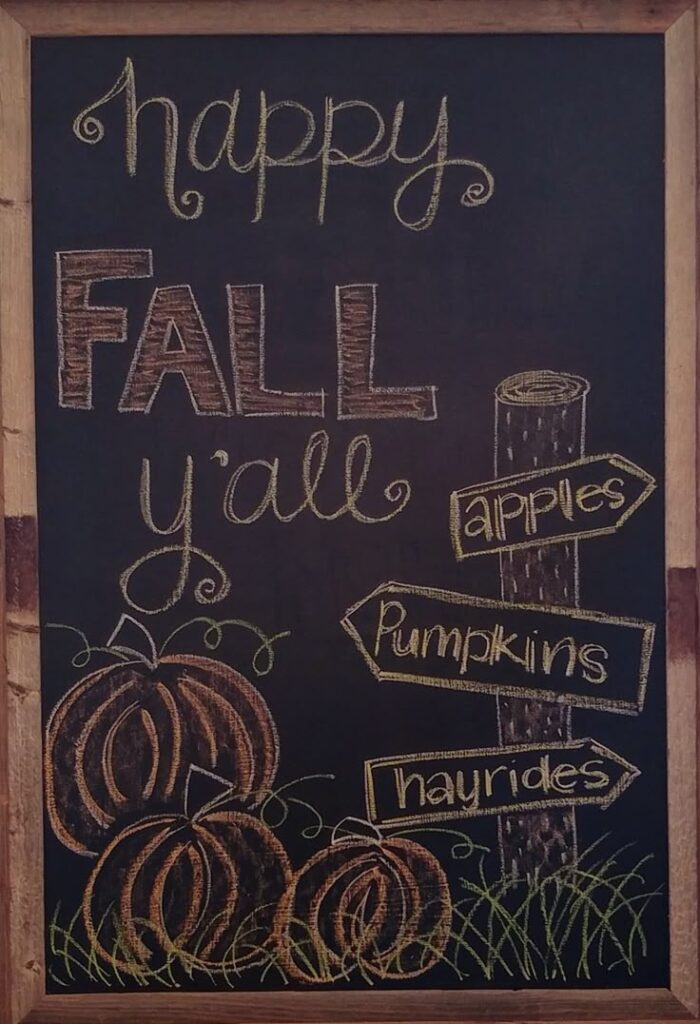 happy
FALL
y'all
apples
Pumpkins
hayrides